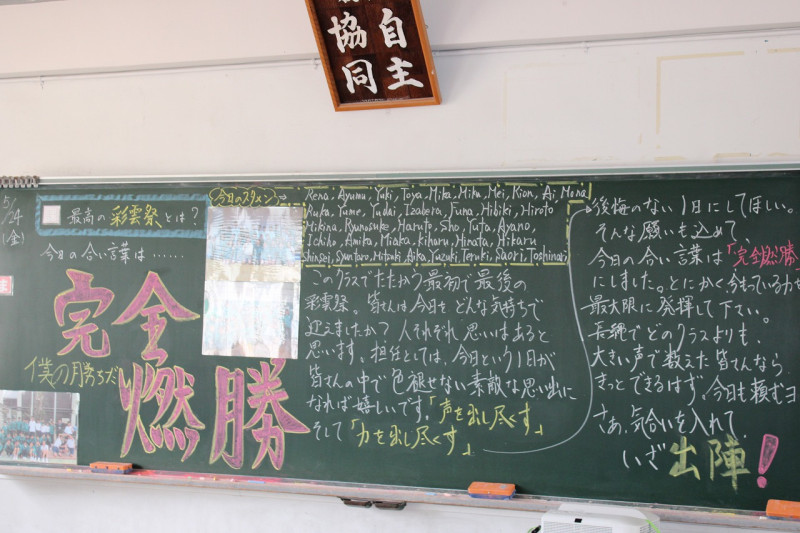 自主
協同
5/24
(金)
最高の彩雲祭とは?
今日の合い言葉は……
完全
燃勝
僕の勝ちだ
今日のスタメン→
Reno, Ayumu, Yuki, Toya, Mika, Miku, Mei, Rion, Ai, Mona
Ruka, Yume, Yudai, Izabera, Funa, Hibiki, Hiroto
Hikina, Ryunosuke, Haruto, Sho, Yuto, Ayano,
Ichiho, Amika, Miaka, Kiharu, Hinata, Hikaru
Shinsei, Suntaro, Mitaki, Aika, Yuzuki, Teruki, Saori, Toshinari
このクラスでたたかう最初で最後の
彩雲祭。皆さんは今日をどんな気持ちで
迎えましたか?人それぞれ思いはあると
思います。担任としては、今日という1日が
皆さんの中で色褪せない素敵な思い出に
なれば嬉しいです。「声を出し尽くす」
そして「力を出し尽くす」
後悔のない1日にしてほしい。
そんな願いも込めて
今日の合い言葉は「完全燃勝」
にしました。とにかく今もっている力を
最大限に発揮して下さい。
長縄でどのクラスよりも、
大きい声で数えた皆さんなら
きっとできるはず。今日も頼むヨ
さあ、気合いを入れて、
いざ出陣!